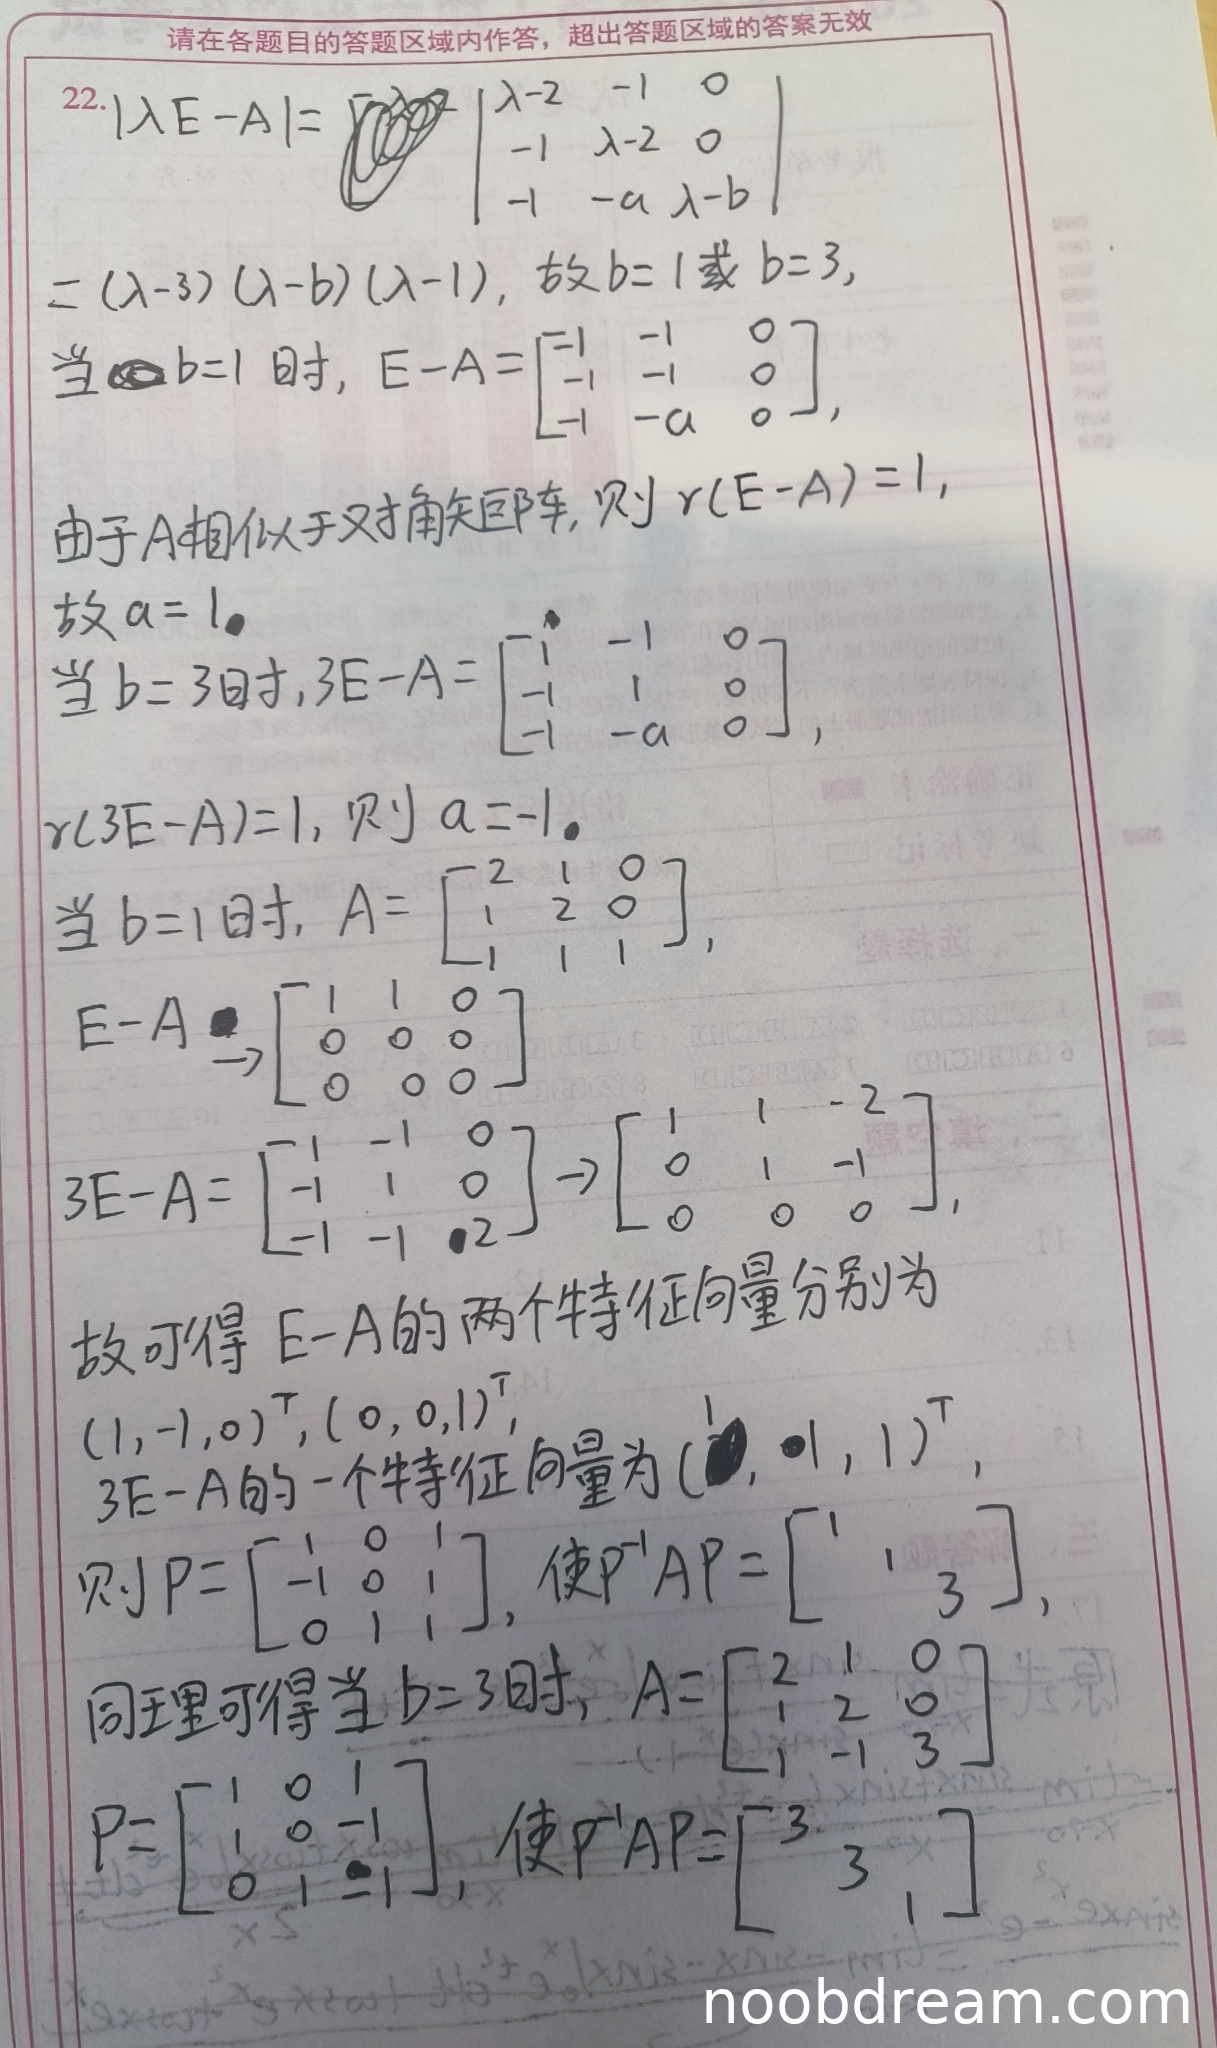 请在各题目的答题区域内作答，超出答题区域的答案无效
22. |λE-A|= | λ-2 -1 0
-1 λ-2 0
-1 -a λ-b |
=(λ-3)(λ-b)(λ-1), 故b=1或b=3,
当b=1时, E-A= [ -1 -1 0
-1 -1 0
-1 -a 0 ],
由于A相似于对角矩阵, 则r(E-A)=1,
故a=1.
当b=3时, 3E-A= [ 1 -1 0
-1 1 0
-1 -a 0 ],
r(3E-A)=1, 则a=-1.
当b=1时, A= [ 2 1 0
1 2 0
1 1 1 ],
E-A → [ 1 1 0
0 0 0
0 0 0 ]
3E-A= [ 1 -1 0
-1 1 0
-1 -1 2 ] → [ 1 1 -2
0 1 -1
0 0 0 ],
故可得E-A的两个特征向量分别为
(1,-1,0)ᵀ, (0,0,1)ᵀ,
3E-A的一个特征向量为(1, 1, 1)ᵀ,
则P= [ 1 0 1
-1 0 1
0 1 1 ], 使P⁻¹AP= [ 1
1
3 ],
同理可得当b=3时, A= [ 2 1 0
1 2 0
1 -1 3 ]
P= [ 1 0 1
1 0 -1
0 1 -1 ], 使P⁻¹AP= [ 3
3
1 ]
noobdream.com